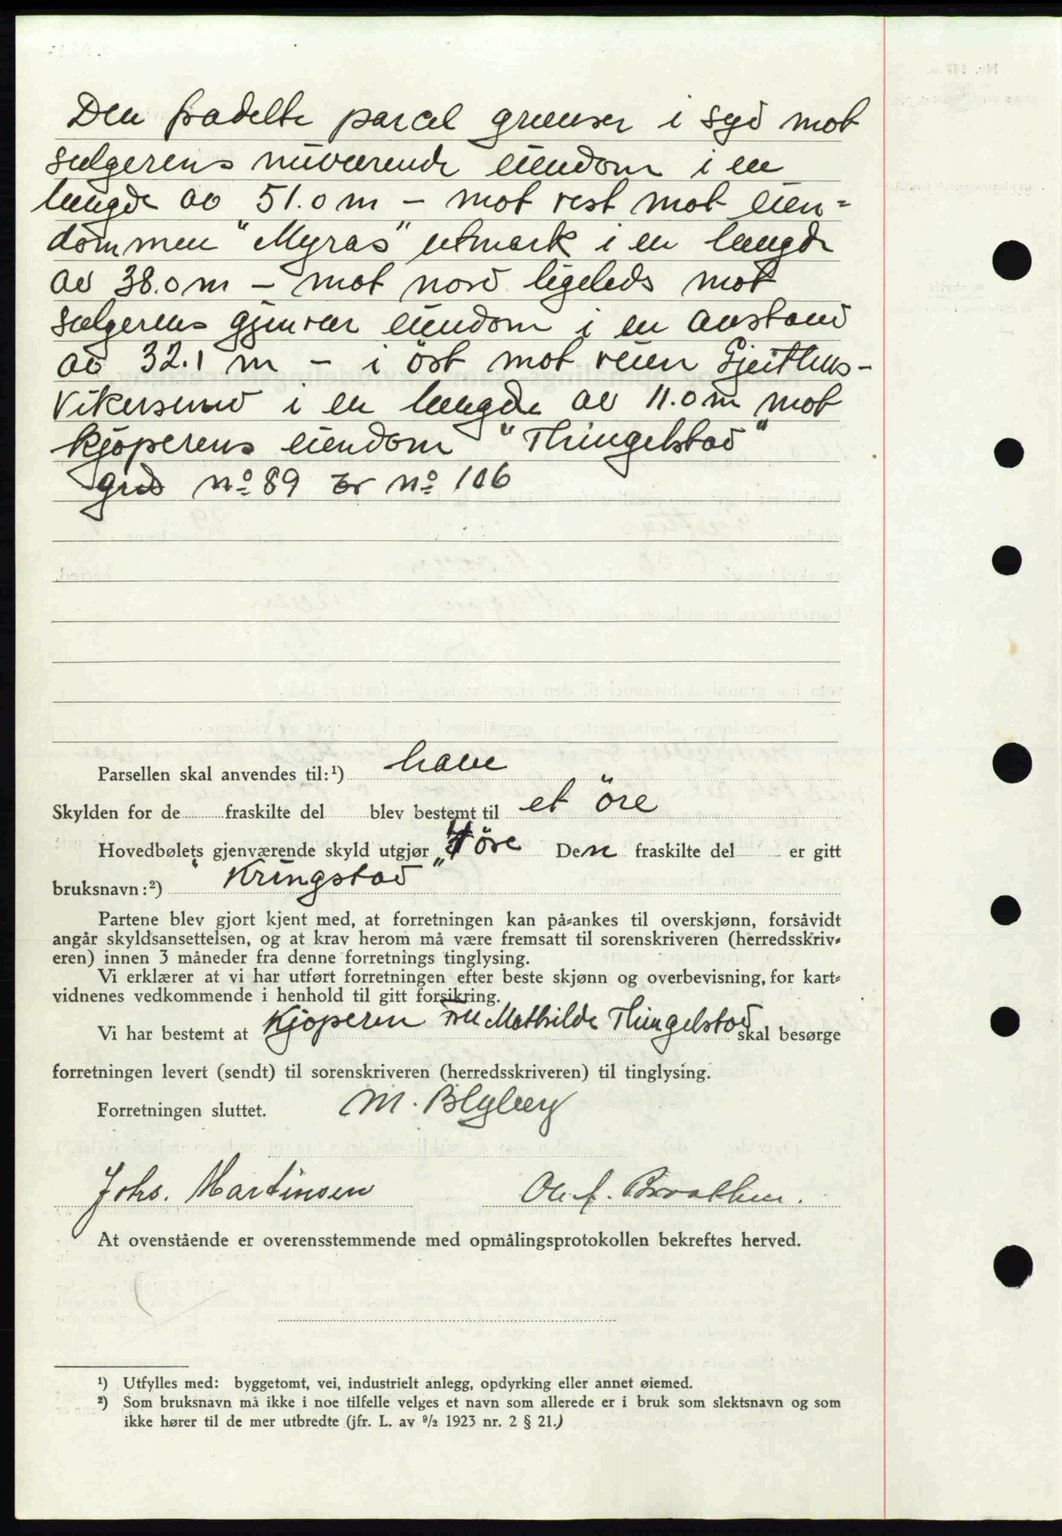 Den fradelte parcel grænser i syd mot
sælgerens nuværende eiendom i en
længde av 51.0 m - mot vest mot eien=
dommen "Myras" utmark i en længde
av 38.0 m - mot nord ligeleds mot
sælgerens gjenvær eiendom i en avstand
av 32.1 m - i öst mot veien Gjeithus-
Vikersund i en længde av 11.0 m mot
kjöperens eiendom "Thingelstad"
grd no 89 br no 106
Parsellen skal anvendes til:¹) have
Skylden for de fraskilte del blev bestemt til et öre
Hovedbølets gjenværende skyld utgjør öre Den fraskilte del er gitt
bruksnavn:²) "Kringstad"
Partene blev gjort kjent med, at forretningen kan på-ankes til overskjønn, forsåvidt
angår skyldsansettelsen, og at krav herom må være fremsatt til sorenskriveren (herredsskriv-
eren) innen 3 måneder fra denne forretnings tinglysing.
Vi erklærer at vi har utført forretningen efter beste skjønn og overbevisning, for kart-
vidnenes vedkommende i henhold til gitt forsikring.
Vi har bestemt at Kjöperen Fru Mathilde Thingelstad skal besørge
forretningen levert (sendt) til sorenskriveren (herredsskriveren) til tinglysing.
Forretningen sluttet. M. Blyberg
Johs. Martinsen Ole A. Braathen.
At ovenstående er overensstemmende med opmålingsprotokollen bekreftes herved.
¹) Utfylles med: byggetomt, vei, industrielt anlegg, opdyrking eller annet øiemed.
²) Som bruksnavn må ikke i noe tilfelle velges et navn som allerede er i bruk som slektsnavn og som
ikke hører til de mer utbredte (jfr. L. av ⁹/₂ 1923 nr. 2 § 21.)